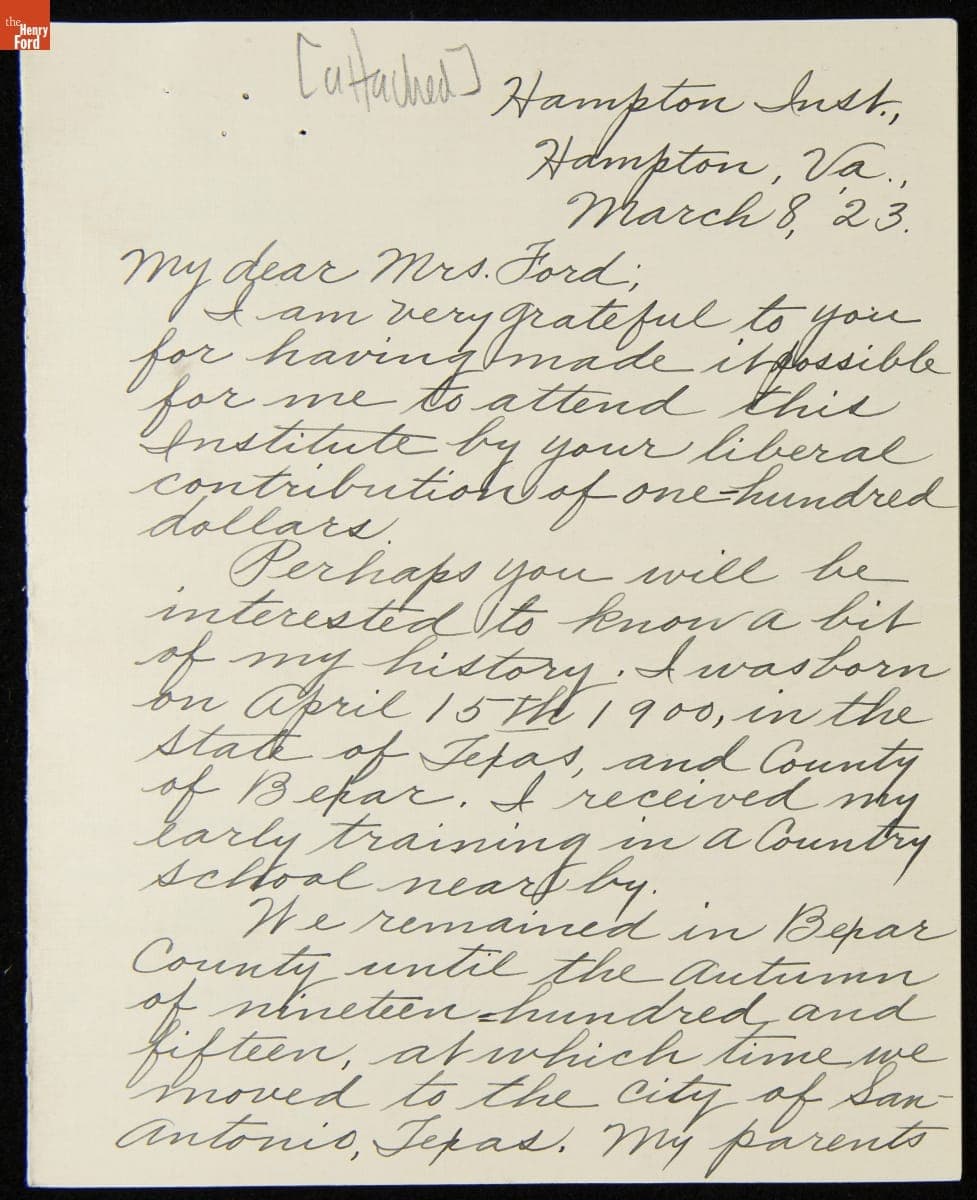 the
Henry
Ford
[attached]
Hampton Inst.,
Hampton, Va.,
March 8, '23.
My dear Mrs. Ford;
I am very grateful to you
for having made it possible
for me to attend this
Institute by your liberal
contribution of one=hundred
dollars.
Perhaps you will be
interested to know a bit
of my history. I was born
on April 15th 1900, in the
state of Texas, and County
of Bexar. I received my
early training in a Country
school near by.
We remained in Bexar
County until the Autumn
of nineteen=hundred and
fifteen, at which time we
moved to the city of San-
Antonio, Texas. My parents